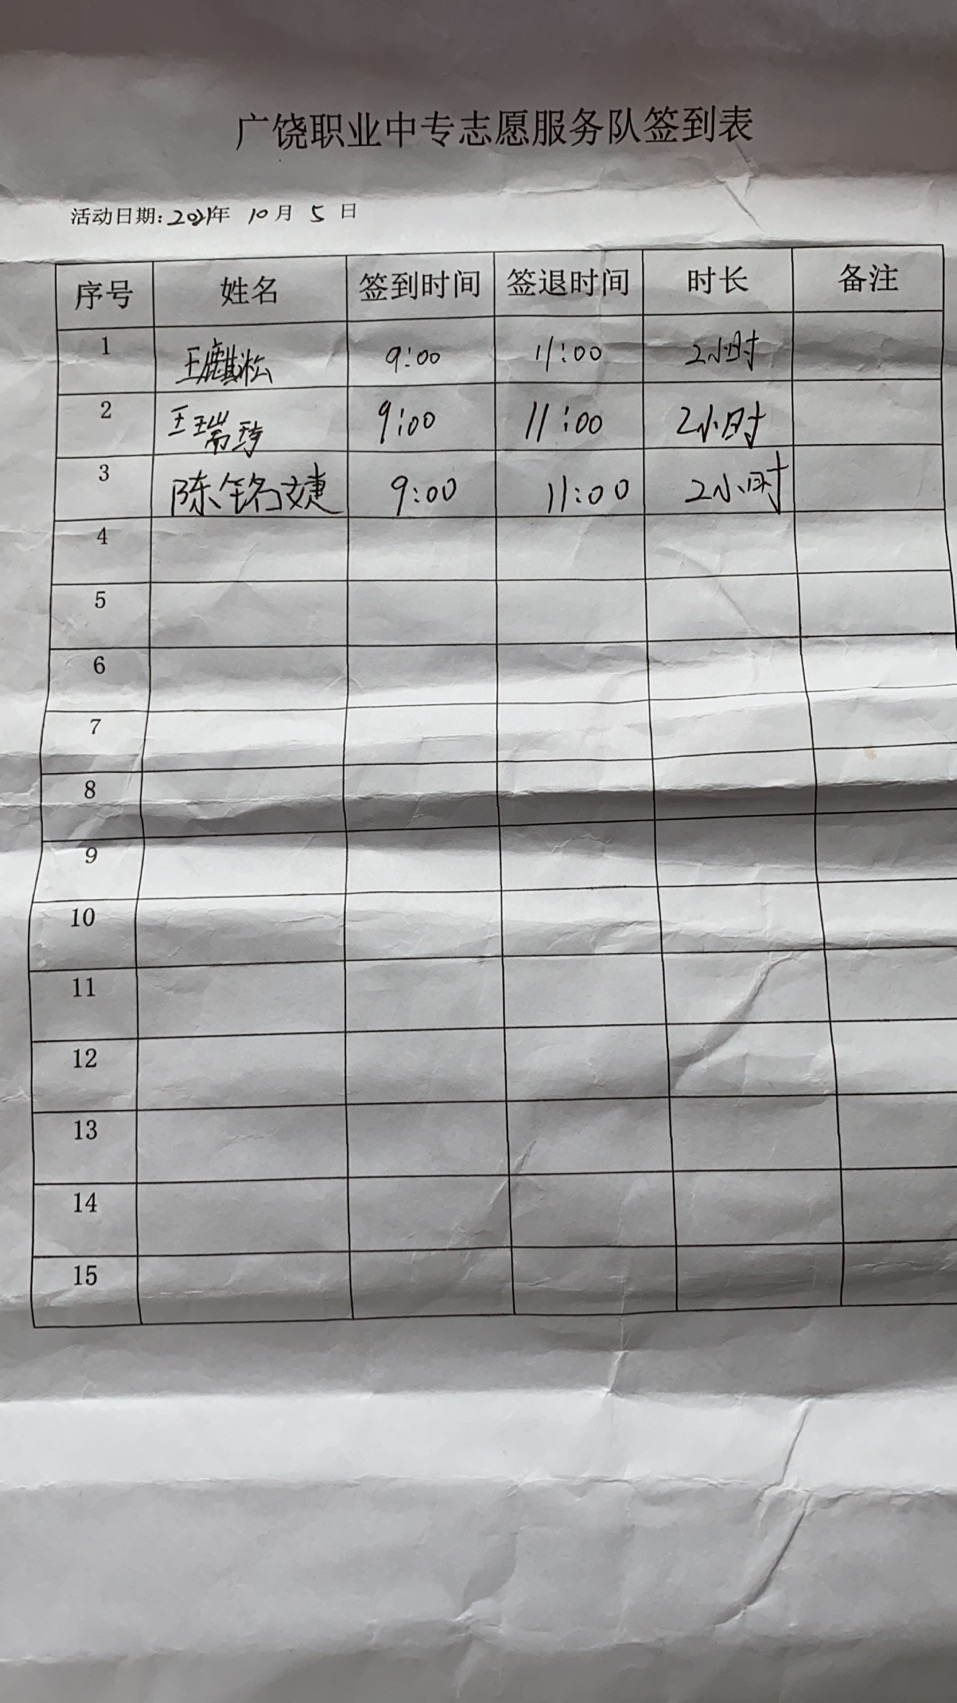 广饶职业中专志愿服务队签到表
活动日期:2021年 10月 5 日
序号 姓名 签到时间 签退时间 时长 备注
1 王麒淞 9:00 11:00 2小时
2 王瑞 9:00 11:00 2小时
3 陈铭婕 9:00 11:00 2小时
4
5
6
7
8
9
10
11
12
13
14
15